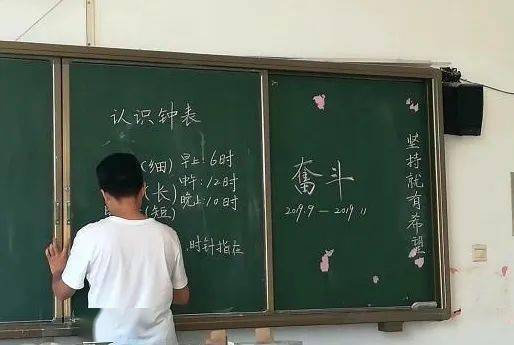 认识钟表
(细) 早上:6时
(长) 中午:12时
(短) 晚上:10时
时针指在
奋斗
2019.9 — 2019.11
坚持就有希望